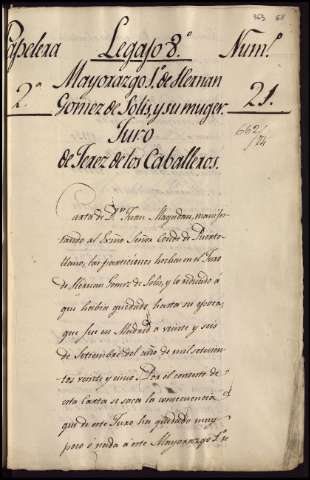 363
Papelera Legajo 8.º Num.º
2.ª Mayorazgo S.r de Hernan 21.
Gomez de Solis, y su muger.
Juro
de Jerez de los Caballeros.
662/
24
Carta de D.n Juan manifes-
tando al Exmo Señor Conde de Puerto-
llano, las particiones hechas en el Juro
de Hernan Gomez de Solis, y lo reducido á
que habia quedado hasta su epoca,
que fue en Madrid á veinte y seis
de Setiembre del año de mil setecien-
tos veinte y cinco. Por el contexto de
esta Carta se saca la consecuencia
que de este Juro ha quedado muy
poco ó nada a este Mayorazgo S.r